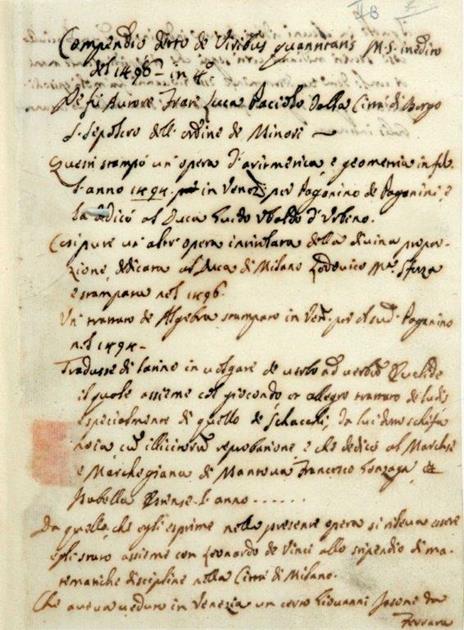 Compendio detto de Viribus quantitatis M.S. inedito
del 1496 in 4.°
Ne fù Autore Frate Luca Paciolo dalla Città di Borgo
S. Sepolcro dell'ordine de Minori —
Questi stampò un'opera d'aritmetica, e geometria in fol.
l'anno 1494. in Venezi per Paganino de Paganini, e
la dedicò al Duca Guido Ubaldo d'Urbino.
Così pure un'altr'opera intitolata della divina propor-
zione, dedicata al Duca di Milano Lodovico M.a Sforza
e stampata nel 1496.
Un trattato de Algebra stampato in Ven. per el sud. Paganino
nel 1494-
Tradusse di latino in volgare de verbo ad verbum Euclide
il quale assieme col giocondo et allegro trattato de ludis
especialmente di quello de Schacchi, da lui detto schifa
noia cum illicitorum reprobatione e che dedicò al Marchese
e Marchegiana di Mantova Francesco Gonzaga, &
Isabella Estense l'anno ......
Da quello, che egli esprime nella presente opera si rileva essere
egli stato assieme con Leonardo da Vinci allo stipendio di ma-
tematiche discipline nella Città di Milano.
Che aveva veduto in Venezia un certo Giovanni da
Ferrara